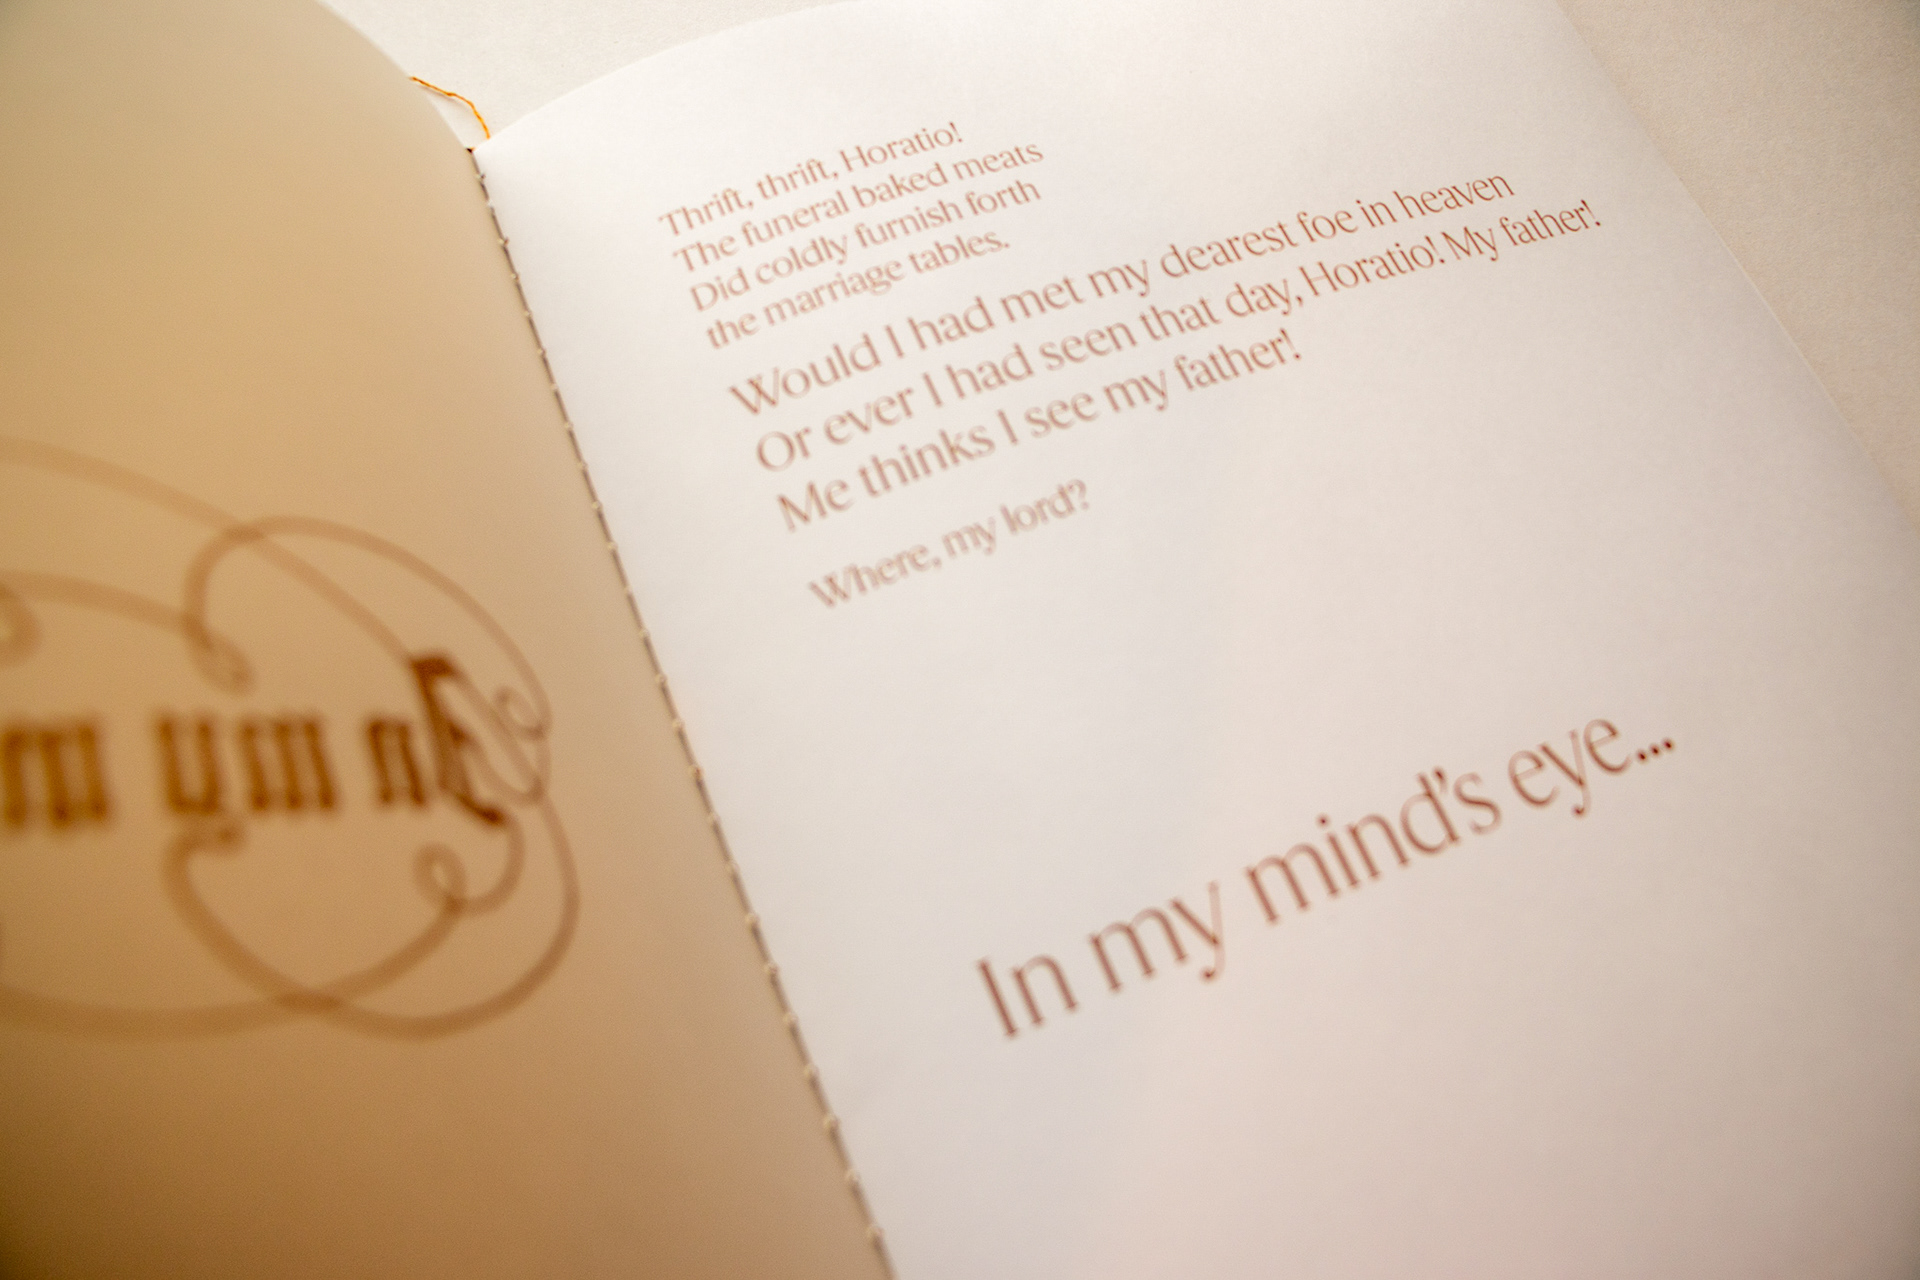 In my m
Thrift, thrift, Horatio!
The funeral baked meats
Did coldly furnish forth
the marriage tables.
Would I had met my dearest foe in heaven
Or ever I had seen that day, Horatio! My father!
Me thinks I see my father!
Where, my lord?
In my mind's eye...